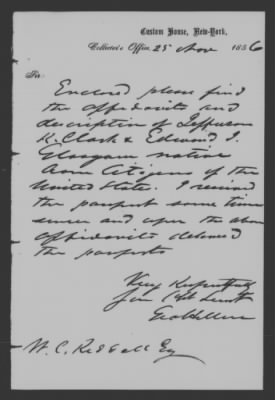 Custom House, New-York,
Collector's Office, 25 Nov 1856
Sir
Enclosed please find
the affidavits and
description of Jefferson
K. Clark & Edmund I.
Glasgow native
born Citizens of the
United States. I received
the passport some time
since and upon the above
affidavits delivered
the passports
Very Respectfully
W. C. Reddall Esq